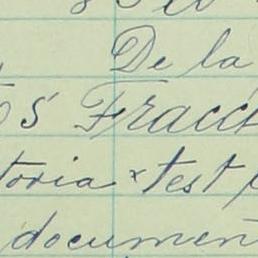 De la
5 Fracc
toria x test
documen